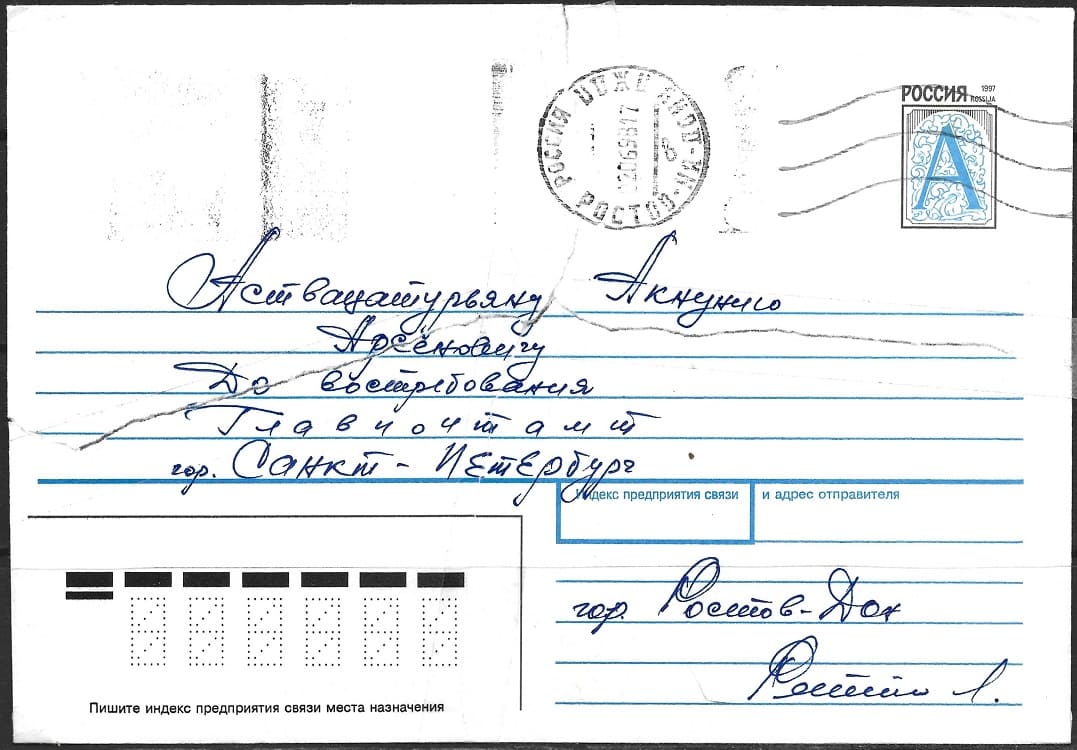 РОССИЯ 1997
ROSSIJA
А
РОССИЯ РОСТОВ-
Аствацатурьяну Акнунию
Арсёновичу
До востребования
Главпочтамт
гор. Санкт-Петербург
Индекс предприятия связи и адрес отправителя
гор. Ростов-Дон
Пишите индекс предприятия связи места назначения